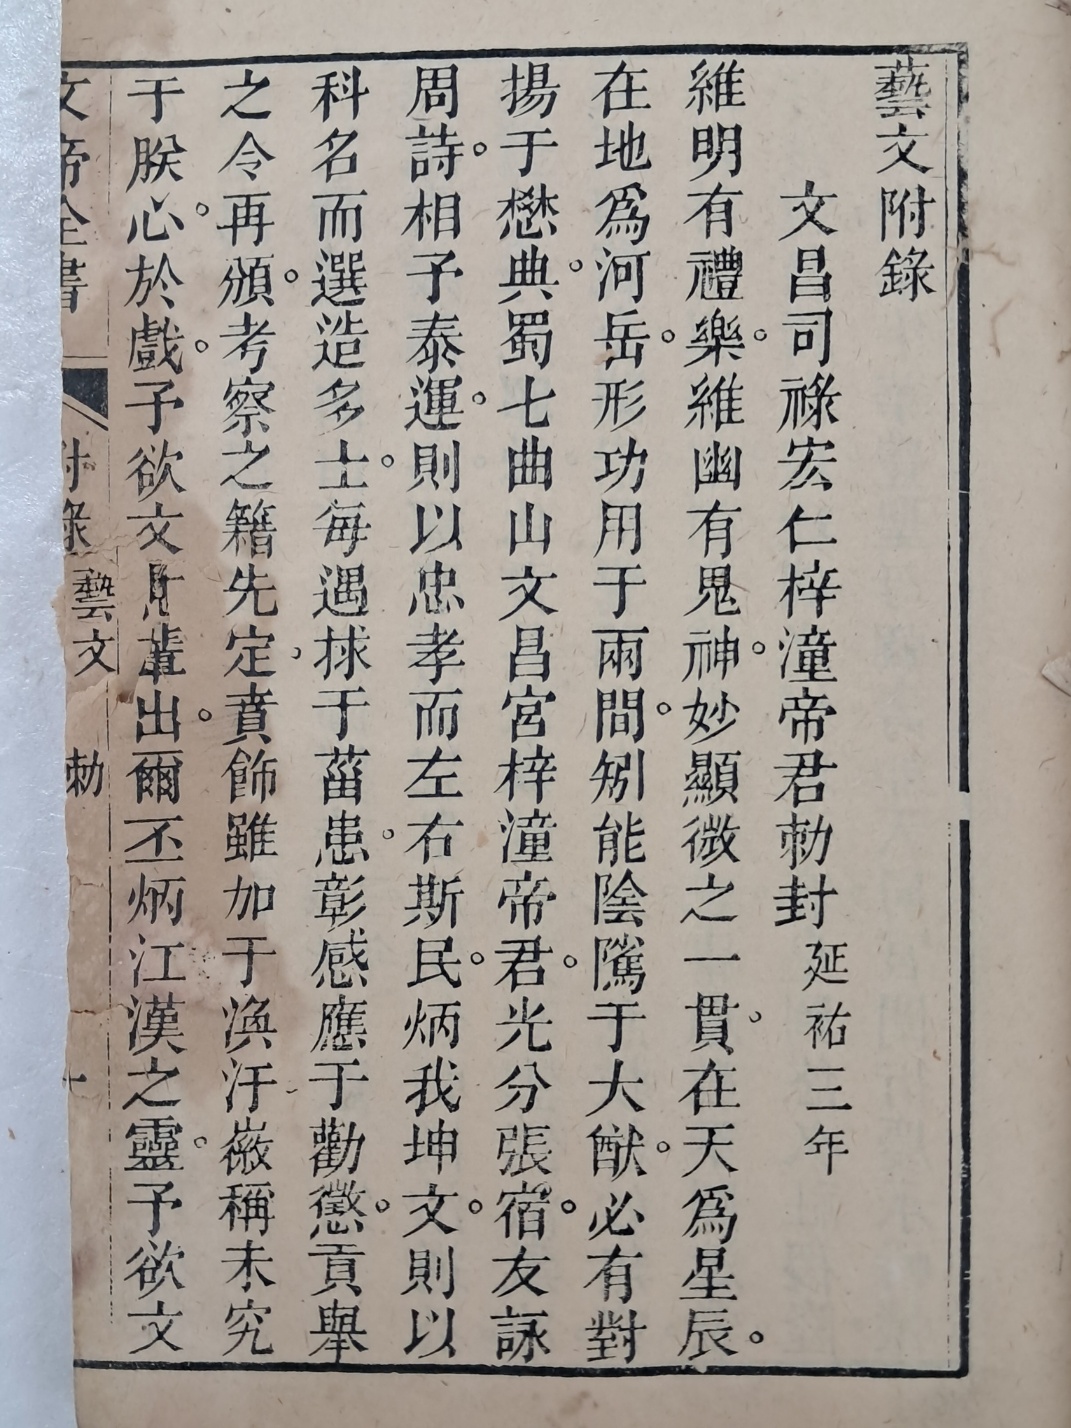 藝文附錄
文昌司祿宏仁梓潼帝君勅封延祐三年
維明有禮樂。維幽有鬼神。妙顯微之一貫。在天爲星辰。
在地爲河岳。形功用于兩間。矧能陰隲于大猷。必有對
揚于懋典。蜀七曲山文昌宮梓潼帝君。光分張宿。友詠
周詩。相予泰運。則以忠孝而左右斯民。炳我坤文。則以
科名而選造多士。每遇捄于菑患。彰感應于勸懲。貢舉
之令再頒。考察之籍先定。賁飾雖加于渙汗。嶶稱未究
于朕心。於戲。予欲文 輩出。爾丕炳江漢之靈。予欲文
文帝全書 附錄 藝文 勅